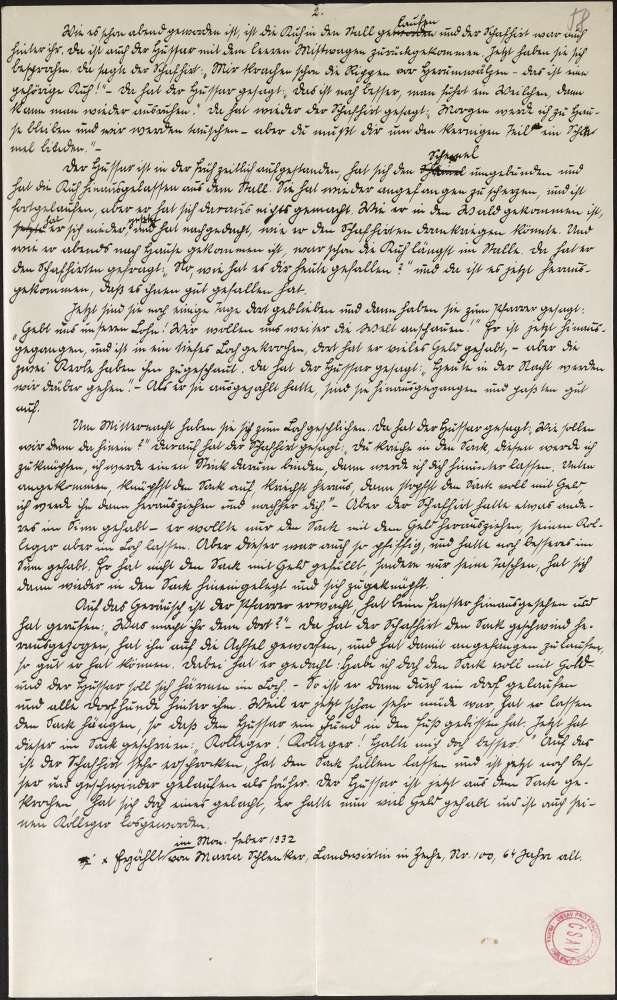 2.
58
Wie es schon abend geworden ist, ist die Kuh in den Stall gelaufen und der Schafhirt war auch
hinter ihr. Da ist auch der Hussar mit dem leeren Mistwagen zurückgekommen. Jetzt haben sie sich
besprochen. Da sagte der Schafhirt: „Mir krachen schon die Rippen vor Herumwälzen - das ist eine
gehörige Kuh!" - Da hat der Hussar gesagt: „das ist noch besser, man führt ein Weilchen, dann
kann man wieder ausruhen." Da hat wieder der Schafhirt gesagt: „Morgen werde ich zu Hau-
se bleiben und wir werden tauschen - aber du mußt dir um den hernigen Teil ein Schä-
mel binden." -
Der Hussar ist in der Früh zeitlich aufgestanden, hat sich den Schemel umgebunden und
hat die Kuh hinausgelassen aus dem Stall. Sie hat wieder angefangen zu scherzen, und ist
fortgelaufen, aber er hat sich daraus nichts gemacht. Wie er in den Wald gekommen ist,
hat er sich nieder gesetzt und hat nachgedacht, wie er den Schafhirten drankriegen könnte. Und
wie er abends nach Hause gekommen ist, war schon die Kuh längst im Stalle. Da hat er
den Schafhirten gefragt: „No, wie hat es dir heute gefallen?" und da ist es jetzt heraus-
gekommen, daß es ihnen gut gefallen hat.
Jetzt sind sie noch einige Tage dort geblieben und dann haben sie zum Pfarrer gesagt:
„Gebt uns unseren Lohn! Wir wollen uns weiter die Welt anschauen!" Er ist jetzt hinaus-
gegangen, und ist in ein tiefes Loch gekrochen, dort hat er vieles Geld gehabt, - aber die
zwei Kerle haben ihm zugeschaut. Da hat der Hussar gesagt: „Heute in der Nacht werden
wir drüber gehen." - Als er sie ausgezahlt hatte, sind sie hinausgegangen und paßten gut
auf.
Um Mitternacht haben sie sich zum Loch geschlichen. Da hat der Hussar gesagt: „Wie sollen
wir denn da hinein?" Darauf hat der Schafhirt gesagt: „Du krieche in den Sack, diesen werde ich
zuknüpfen, ich werde einen Strick darum binden, dann werde ich dich hinunter lassen. Unten
angekommen, knüpfst den Sack auf, kriechst heraus, dann stopfst den Sack voll mit Geld
ich werde ihn dann herausziehen und nachher dich." - Aber der Schafhirt hatte etwas ande-
res im Sinn gehabt - er wollte nur den Sack mit dem Geld herausziehen, seinen Kol-
leger aber im Loch lassen. Aber dieser war auch so pfiffig, und hatte noch besseres im
Sinn gehabt. Er hat nicht den Sack mit Geld gefüllt, sondern nur seine Taschen, hat sich
dann wieder in den Sack hineingelegt und sich zugeknüpft.
Auf das Geräusch ist der Pfarrer erwacht, hat beim Fenster hinausgesehen und
hat gerufen: „Was macht ihr denn dort?" - Da hat der Schafhirt den Sack geschwind he-
rausgezogen, hat ihn auf die Achsel geworfen, und hat damit angefangen zu laufen,
so gut er hat können. Dabei hat er gedacht: Habe ich doch den Sack voll mit Geld -
und der Hussar soll sich härmen im Loch. - So ist er dann durch ein Dorf gelaufen
und alle Dorfhunde hinter ihm. Weil er jetzt schon sehr müde war, hat er lassen
den Sack hängen, so daß den Hussar ein Hund in den Fuß gebissen hat. Jetzt hat
dieser im Sack geschrien: „Kolleger! Kolleger! Halte mich doch besser." Auf das
ist der Schafhirt sehr erschrocken, hat den Sack fallen lassen und ist jetzt noch bes-
ser und geschwinder gelaufen als früher. Der Hussar ist jetzt aus dem Sack ge-
krochen, hat sich doch eines gelacht, er hatte nun viel Geld gehabt und ist auch sei-
nen Kolleger losgeworden.
im Mon. Feber 1932
x Erzählt von Maria Schlenker, Landwirtin in Zeche, Nr. 100, 64 Jahre alt.
ČSAV